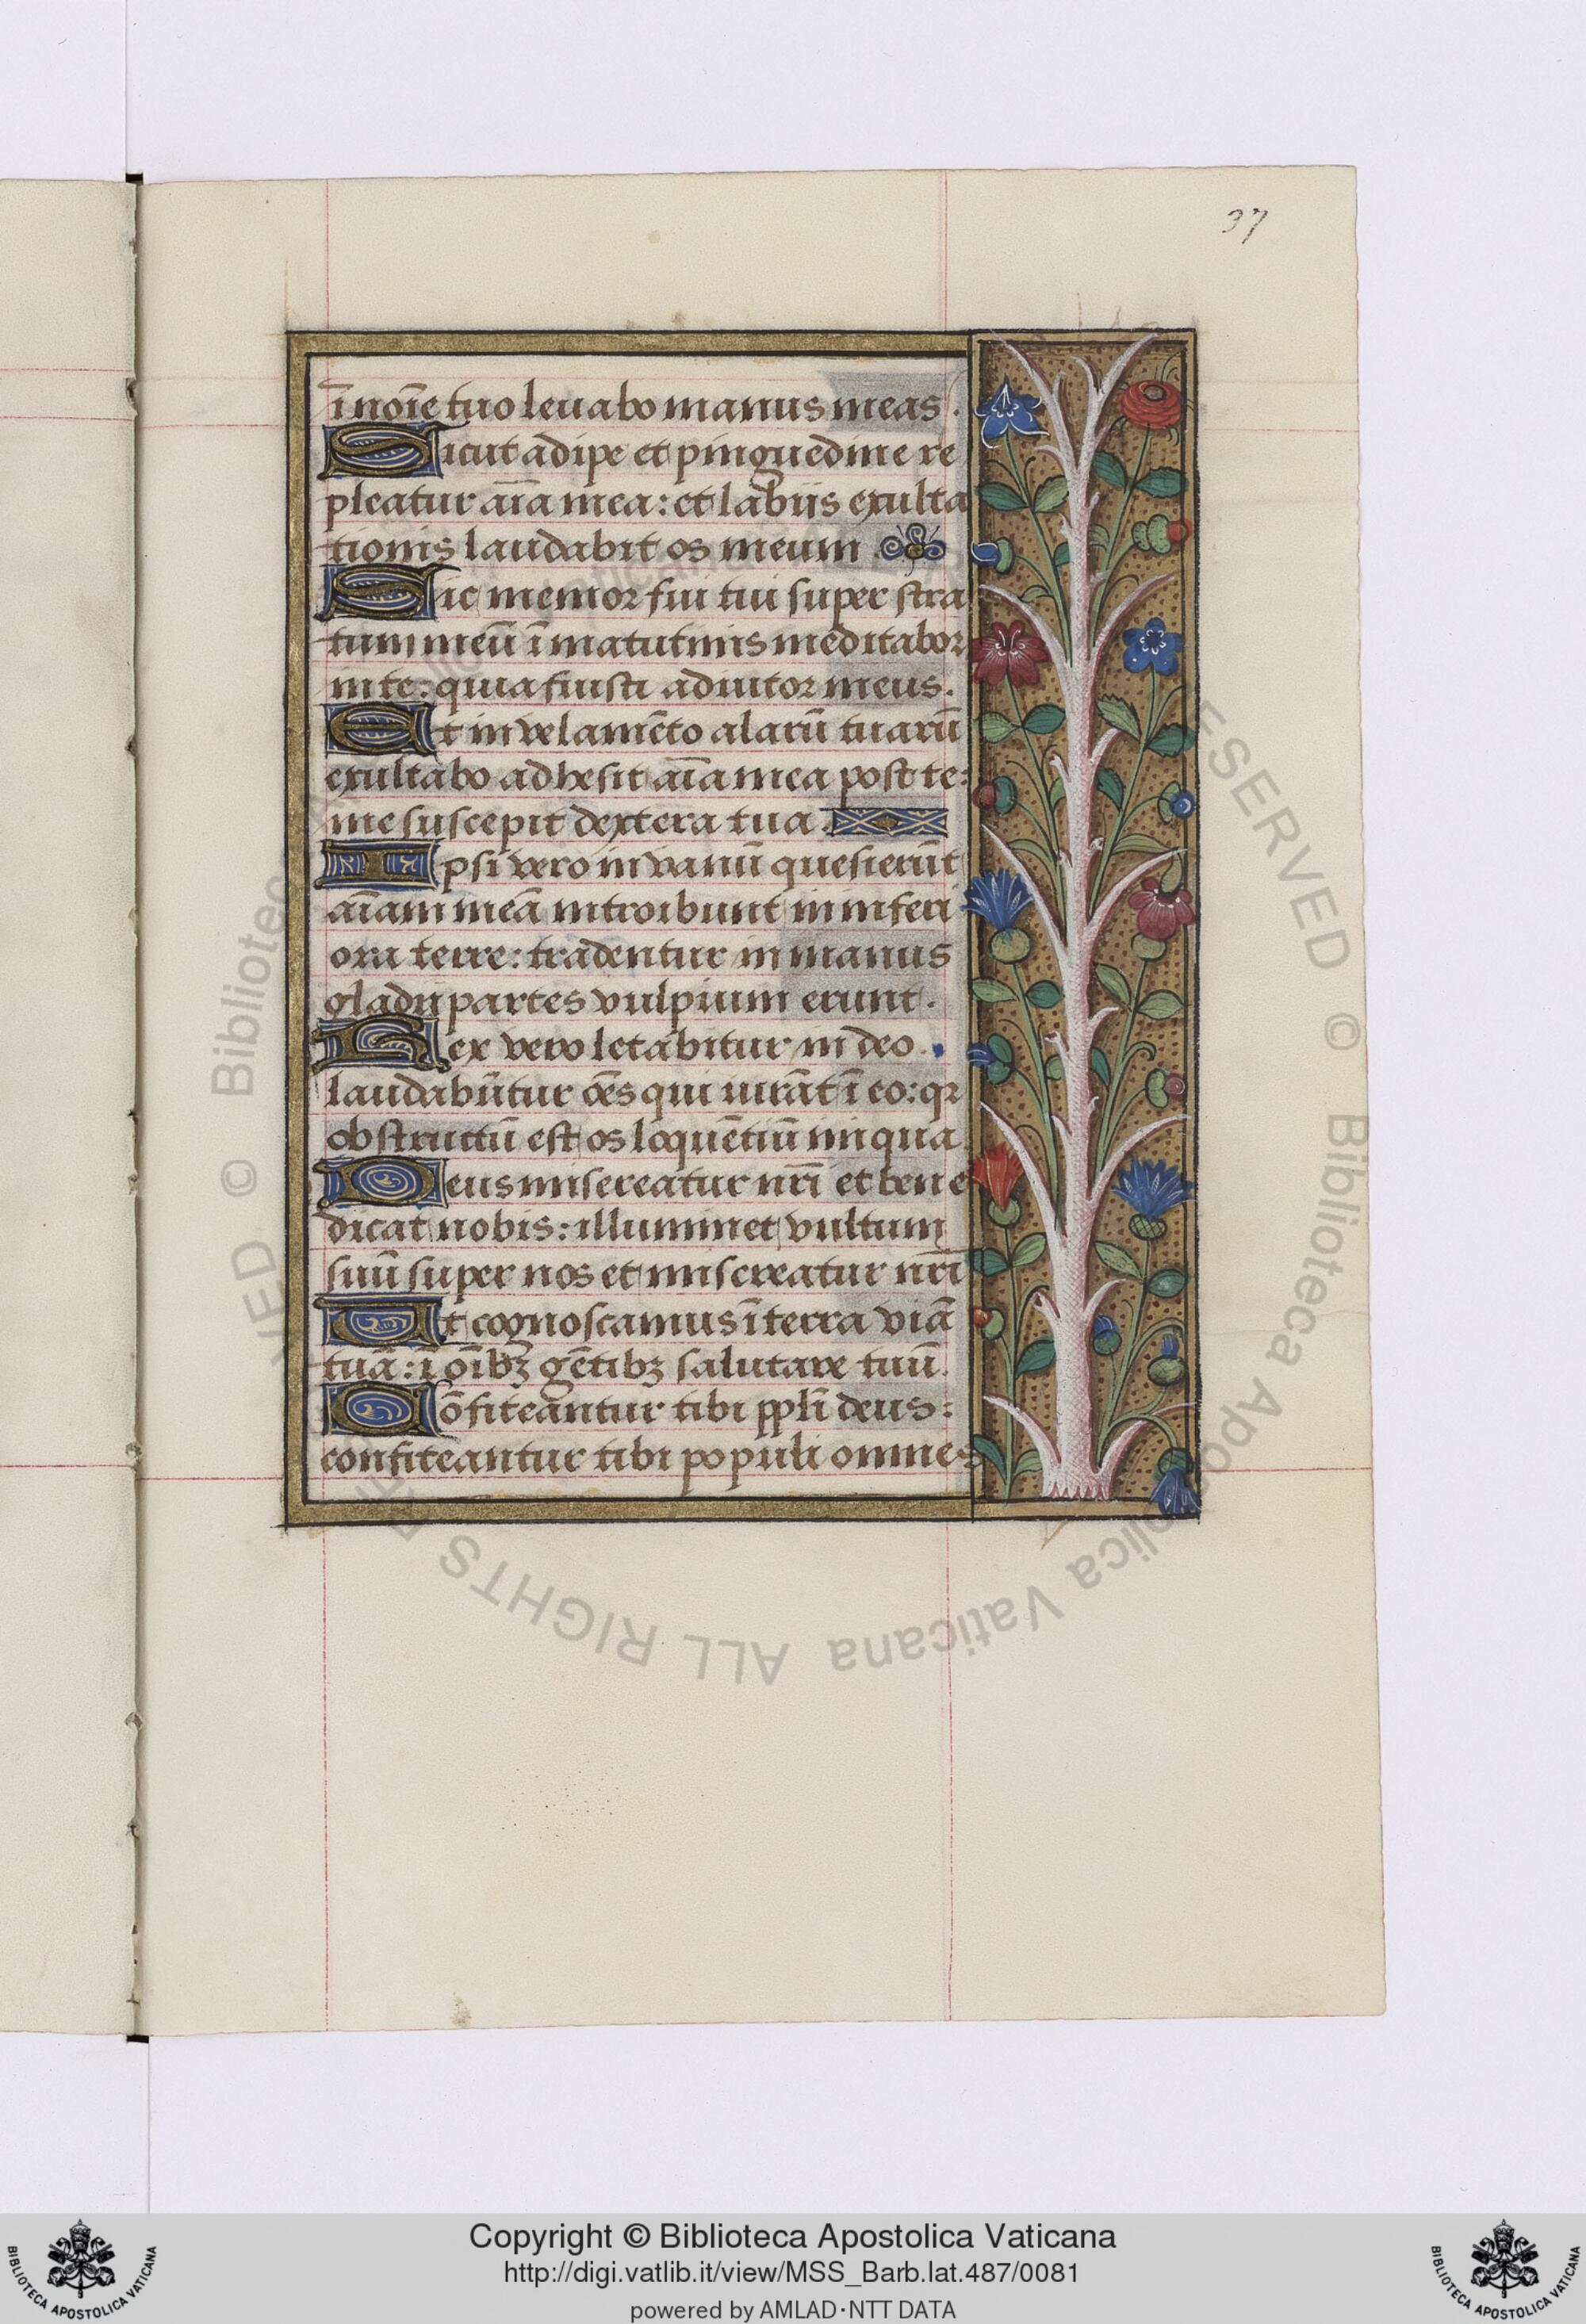 37
ī noīe tuo leuabo manus meas .
Sicut adipe et pinguedine re
pleatur aīa mea: et labijs exulta
tionis laudabit os meum .
Sic memor fui tui super stra
tum meū ī matutinis meditabor
in te: quia fuisti adiutor meus .
Et in velamēto alarū tuarū
exultabo adhesit aīa mea post te:
me suscepit dextera tua .
Ipsi vero in vanū quesierūt
aīam meā introibunt in inferi
ora terre: tradentur in manus
gladij partes vulpium erunt .
Rex vero letabitur in deo .
laudabūtur oēs qui iurāt ī eo: qr
obstructū est os loquētiū iniqua
Deus misereatur nr̄i et bene
dicat nobis: illuminet vultum
suū super nos et misereatur nr̄i
Ut cognoscamus ī terra viā
tuā: ī oībꝫ gētibꝫ salutare tuū.
Cōfiteantur tibi ppl̄i deus:
confiteantur tibi populi omnes
© Biblioteca Apostolica Vaticana ALL RIGHTS RESERVED
Copyright © Biblioteca Apostolica Vaticana
http://digi.vatlib.it/view/MSS_Barb.lat.487/0081
powered by AMLAD·NTT DATA
BIBLIOTECA APOSTOLICA VATICANA
BIBLIOTECA APOSTOLICA VATICANA